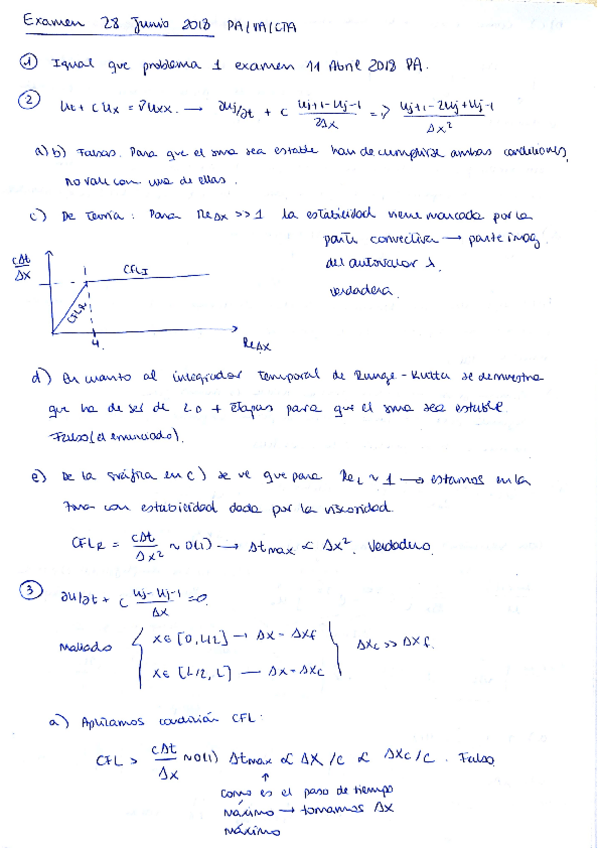 Examen 28 Junio 2018 PA/VA/CTA
① Igual que problema 1 examen 11 Abril 2018 PA.
② Ut + C Ux = ν Uxx. → ∂uj/∂t + C (uj+1 - uj-1)/(2Δx) = ν (uj+1 - 2uj + uj-1)/Δx²
a) b) Falsas. Para que el sma sea estable han de cumplirse ambas condiciones,
no vale con una de ellas.
c) De teoría: Para ReΔx >> 1 la estabilidad viene marcada por la
parte convectiva → parte imag.
del autovalor λ.
verdadera.
cΔt/Δx
1
CFL I
CFL R
4
ReΔx
d) En cuanto al integrador temporal de Runge-Kutta se demuestra
que ha de ser de 2 o + etapas para que el sma sea estable
Falso (el enunciado).
e) De la gráfica en c) se ve que para ReL ~ 1 → estamos en la
zona con estabilidad dada por la viscosidad.
CFLR = cΔt/Δx² ~ O(1) → Δtmax ∝ Δx². Verdadero.
③ ∂u/∂t + C (uj - uj-1)/Δx = 0.
Mallado { x ∈ [0, L/2] → Δx = Δxf
x ∈ [L/2, L] — Δx = Δxc } Δxc >> Δxf.
a) Aplicamos condición CFL:
CFL > cΔt/Δx ~ O(1) Δtmax ∝ Δx/c ∝ Δxc/c. Falso
↑
como es el paso de tiempo
máximo → tomamos Δx
máximo